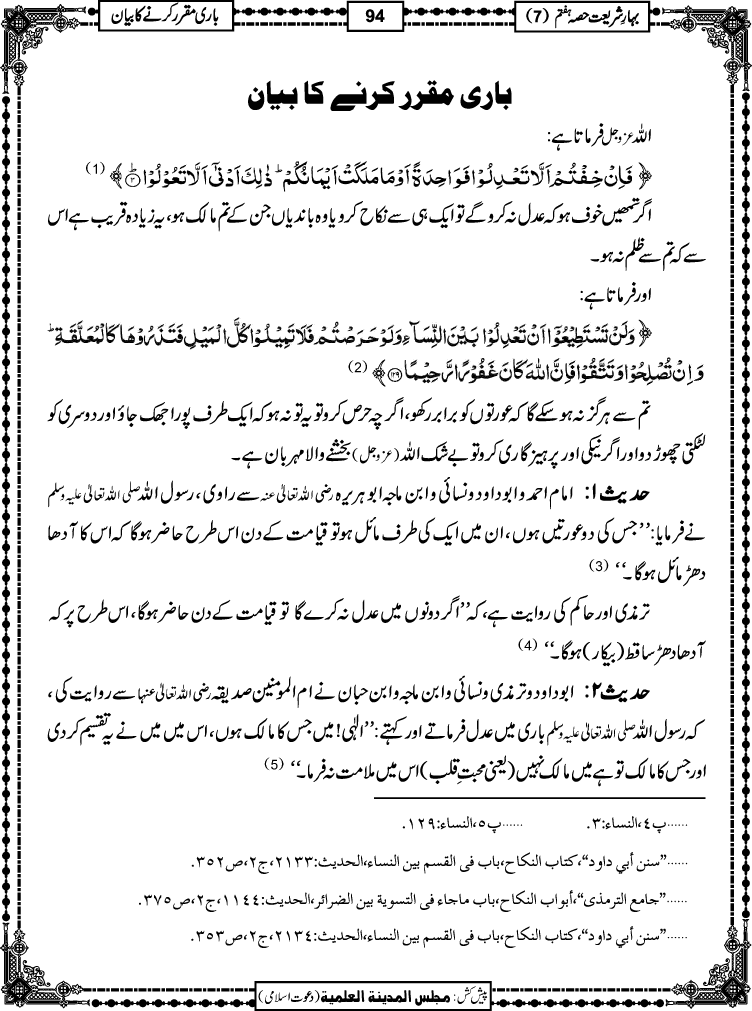 بہارِ شریعت حصہ ہفتم (7)
94
باری مقرر کرنے کا بیان
باری مقرر کرنے کا بیان
اللہ عزوجل فرماتا ہے:
﴿ فَاِنْ خِفْتُمْ اَلَّا تَعْدِلُوْا فَوَاحِدَةً اَوْ مَا مَلَكَتْ اَیْمَانُكُمْ ؕ ذٰلِكَ اَدْنٰۤی اَلَّا تَعُوْلُوْا ؕ﴿۳﴾ ﴾ (1)
اگر تمھیں خوف ہو کہ عدل نہ کرو گے تو ایک ہی سے نکاح کرو یا وہ باندیاں جن کے تم مالک ہو، یہ زیادہ قریب ہے اس
سے کہ تم سے ظلم نہ ہو۔
اور فرماتا ہے:
﴿ وَ لَنْ تَسْتَطِیْعُوْۤا اَنْ تَعْدِلُوْا بَیْنَ النِّسَآءِ وَ لَوْ حَرَصْتُمْ فَلَا تَمِیْلُوْا كُلَّ الْمَیْلِ فَتَذَرُوْهَا كَالْمُعَلَّقَةِ ؕ
وَ اِنْ تُصْلِحُوْا وَ تَتَّقُوْا فَاِنَّ اللّٰهَ كَانَ غَفُوْرًا رَّحِیْمًا ﴿۱۲۹﴾ ﴾ (2)
تم سے ہرگز نہ ہو سکے گا کہ عورتوں کو برابر رکھو، اگرچہ حرص کرو تو یہ تو نہ ہو کہ ایک طرف پورا جھک جاؤ اور دوسری کو
لٹکتی چھوڑ دو اور اگر نیکی اور پرہیزگاری کرو تو بے شک اللہ (عزوجل) بخشنے والا مہربان ہے۔
حدیث ۱: امام احمد و ابو داود و نسائی و ابن ماجہ ابو ہریرہ رضی اللہ تعالیٰ عنہ سے راوی، رسول اللہ صلی اللہ تعالیٰ علیہ وسلم
نے فرمایا: ’’جس کی دو عورتیں ہوں، ان میں ایک کی طرف مائل ہو تو قیامت کے دن اس طرح حاضر ہوگا کہ اس کا آدھا
دھڑ مائل ہوگا۔‘‘ (3)
ترمذی اور حاکم کی روایت ہے، کہ ’’اگر دونوں میں عدل نہ کرے گا تو قیامت کے دن حاضر ہوگا، اس طرح پر کہ
آدھا دھڑ ساقط (بیکار) ہوگا۔‘‘ (4)
حدیث ۲: ابو داود و ترمذی و نسائی و ابن ماجہ و ابن حبان نے ام المومنین صدیقہ رضی اللہ تعالیٰ عنہا سے روایت کی،
کہ رسول اللہ صلی اللہ تعالیٰ علیہ وسلم باری میں عدل فرماتے اور کہتے: ’’الٰہی! میں جس کا مالک ہوں، اس میں میں نے یہ تقسیم کردی
اور جس کا مالک تو ہے میں مالک نہیں (یعنی محبتِ قلب) اس میں ملامت نہ فرما۔‘‘ (5)
......پ٤،النساء:٣. ......پ٥،النساء:١٢٩.
......"سنن أبي داود"،كتاب النكاح،باب في القسم بين النساء،الحديث:٢١٣٣،ج٢،ص٣٥٢.
......"جامع الترمذي"،أبواب النكاح،باب ماجاء في التسوية بين الضرائر،الحديث:١١٤٤،ج٢،ص٣٧٥.
......"سنن أبي داود"،كتاب النكاح،باب في القسم بين النساء،الحديث:٢١٣٤،ج٢،ص٣٥٣.
پیش کش: مجلس المدینة العلمیة (دعوت اسلامی)